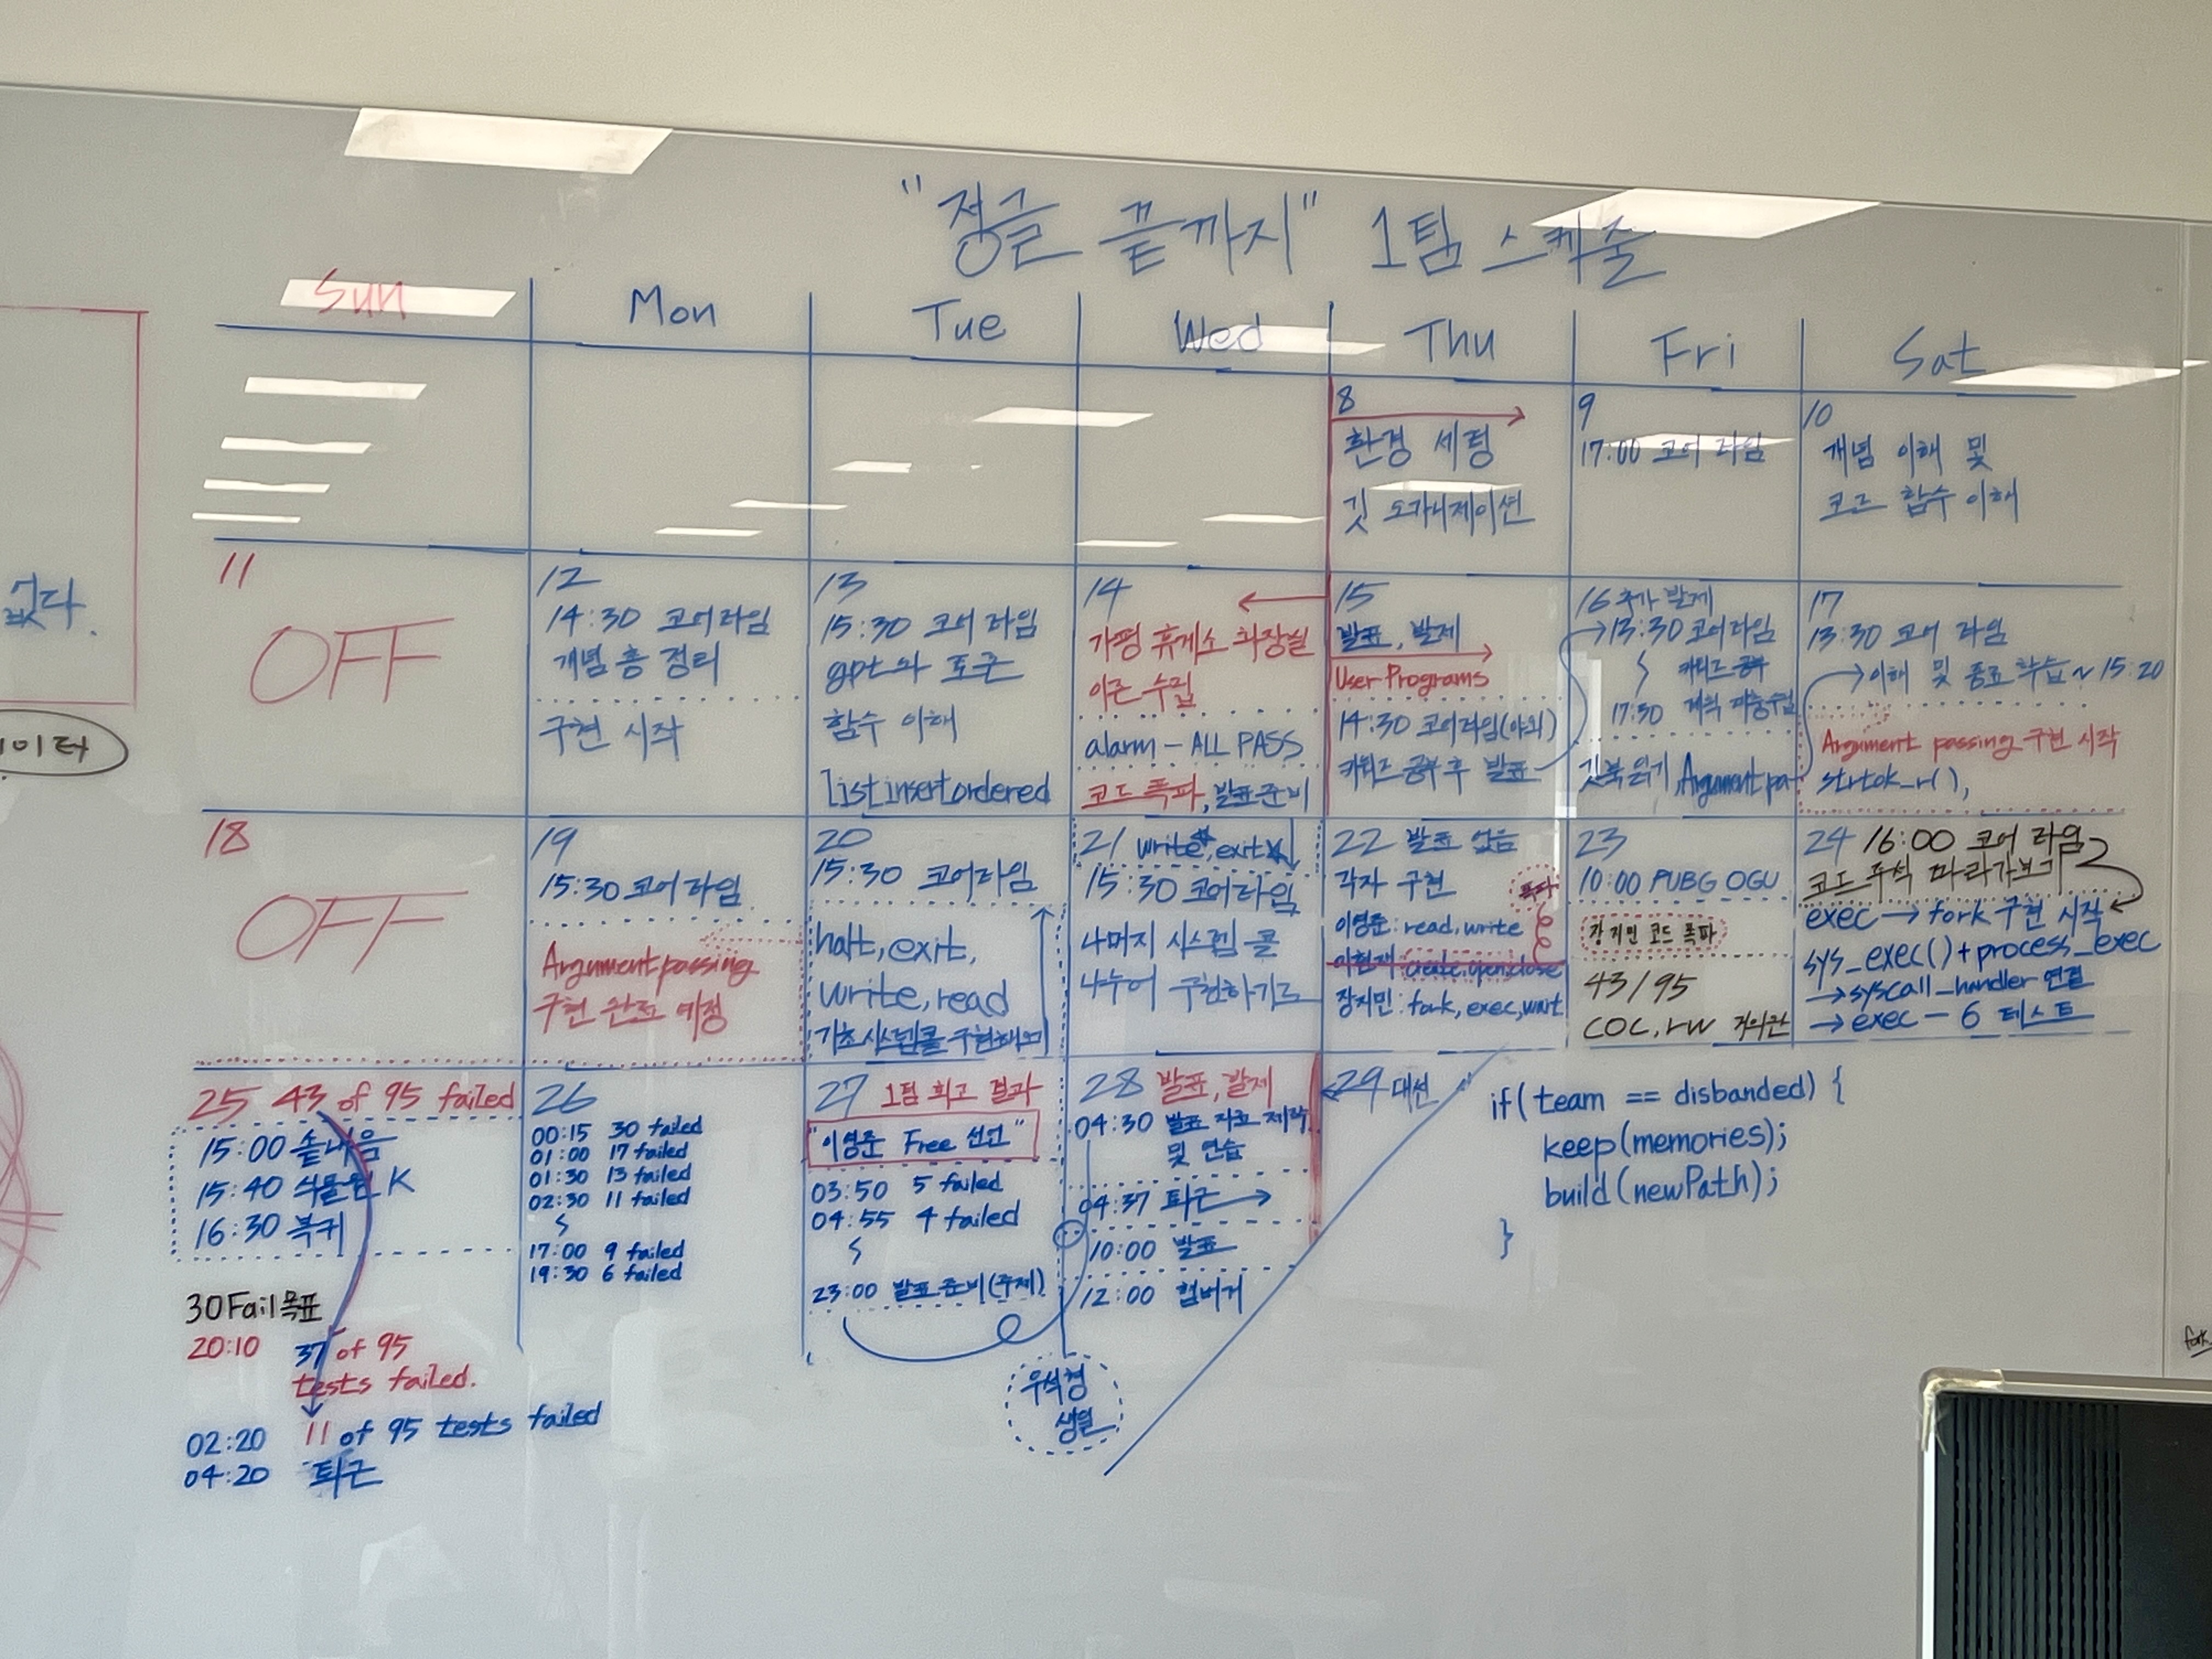 "정글 끝까지" 1팀 스케줄
Sun Mon Tue Wed Thu Fri Sat
8
환경 세팅
깃 오가니제이션
9
17:00 코어 타임
10
개념 이해 및
코드 함수 이해
11
OFF
12
14:30 코어타임
개념 총 정리
구현 시작
13
15:30 코어 타임
gpt와 토론
함수 이해
list insert ordered
14
가평 휴게소 화장실
이론 수립
alarm - ALL PASS
코드 폭파, 발표준비
15
발표, 발제
User Programs
14:30 코어타임(야외)
키워드 공부 후 발표
16 추가 발제
13:30 코어타임
키워드 공부
17:30 계획
깃북 읽기 Argument pa
17
13:30 코어 타임
이해 및 종료 학습 ~ 15:20
Argument passing 구현 시작
strtok_r(),
18
OFF
19
15:30 코어타임
Argument passing
구현 완료 예정
20
15:30 코어타임
halt, exit,
write, read
기초 시스템콜 구현해보기
21 write, exit
15:30 코어타임
나머지 시스템 콜
나누어 구현하기로
22 발표 없음
각자 구현
폭파
이영준: read, write
create, open, close
장지민: fork, exec, wait
23
10:00 PUBG OGU
장지민 코드 폭파
43/95
COC, rw 거의완
24 16:00 코어 타임
코드 주석 따라가보기
exec → fork 구현 시작
sys_exec() + process_exec
→ syscall_handler 연결
→ exec - 6 테스트
25 43 of 95 failed
15:00 솥내음
15:40 식물원 K
16:30 복귀
30 Fail 목표
20:10 37 of 95
tests failed.
02:20 11 of 95 tests failed
04:20 퇴근
26
00:15 30 failed
01:00 17 failed
01:30 13 failed
02:30 11 failed
17:00 9 failed
19:30 6 failed
27 1팀 회고 결과
"이영준 Free 선언"
03:50 5 failed
04:55 4 failed
23:00 발표 준비(주제)
28 발표, 발제
04:30 발표 자료 제작
및 연습
04:37 퇴근 →
10:00 발표
12:00 햄버거
우석형
생일
29 대선
if( team == disbanded) {
keep(memories);
build(newPath);
}
없다.
이터
fork